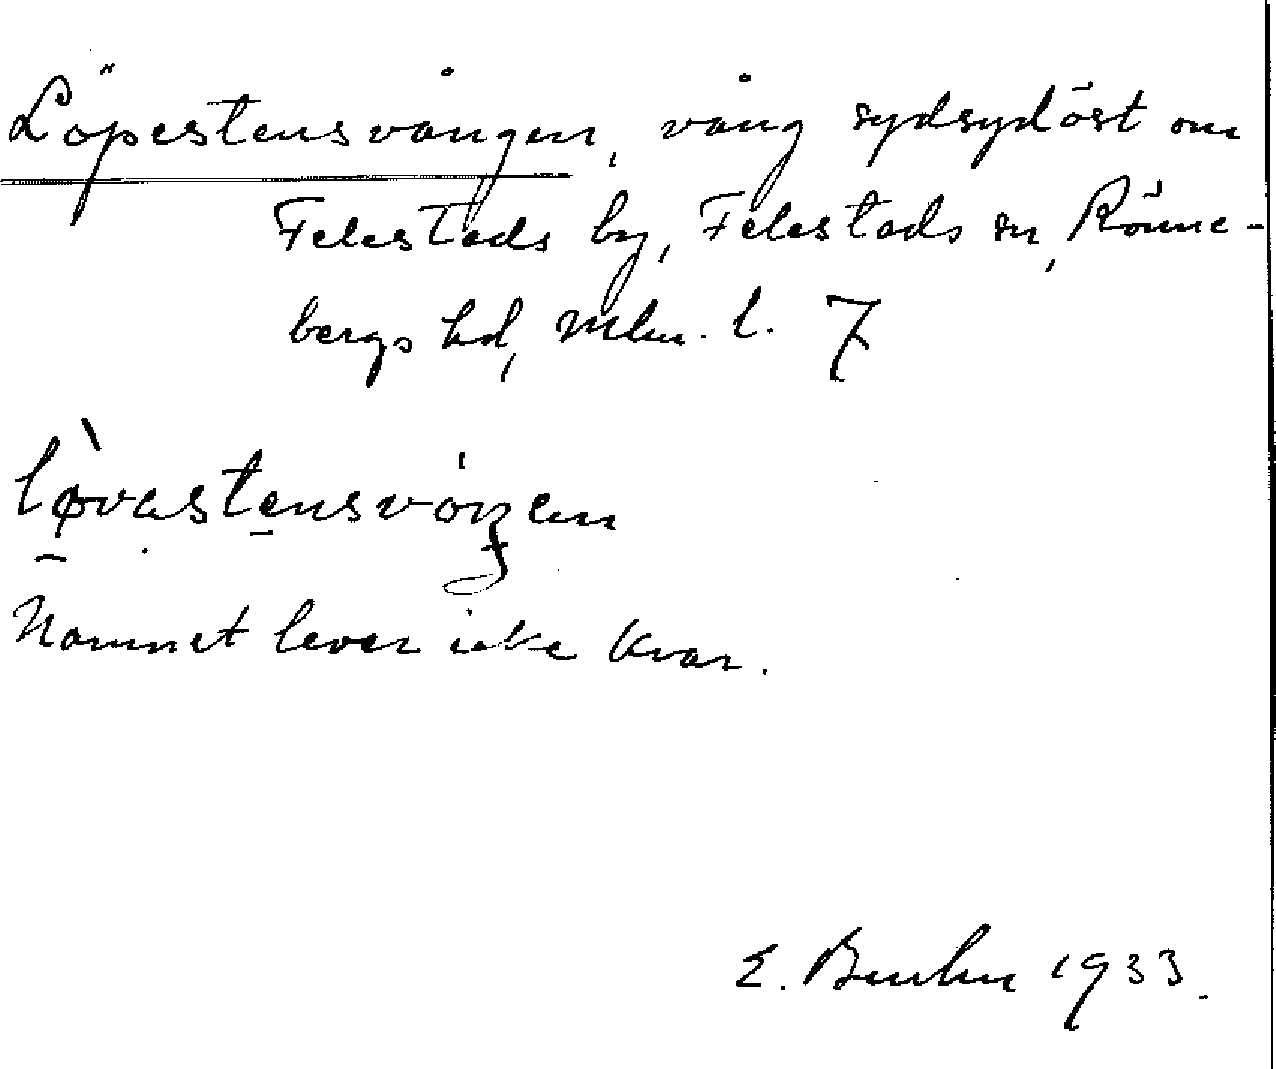 Löpestensvången, vång sydsydöst om
Felestads by, Felestads sn, Rönne-
bergs hd, Mlm. l. 7
Namnet lever icke kvar.
E. 1933.